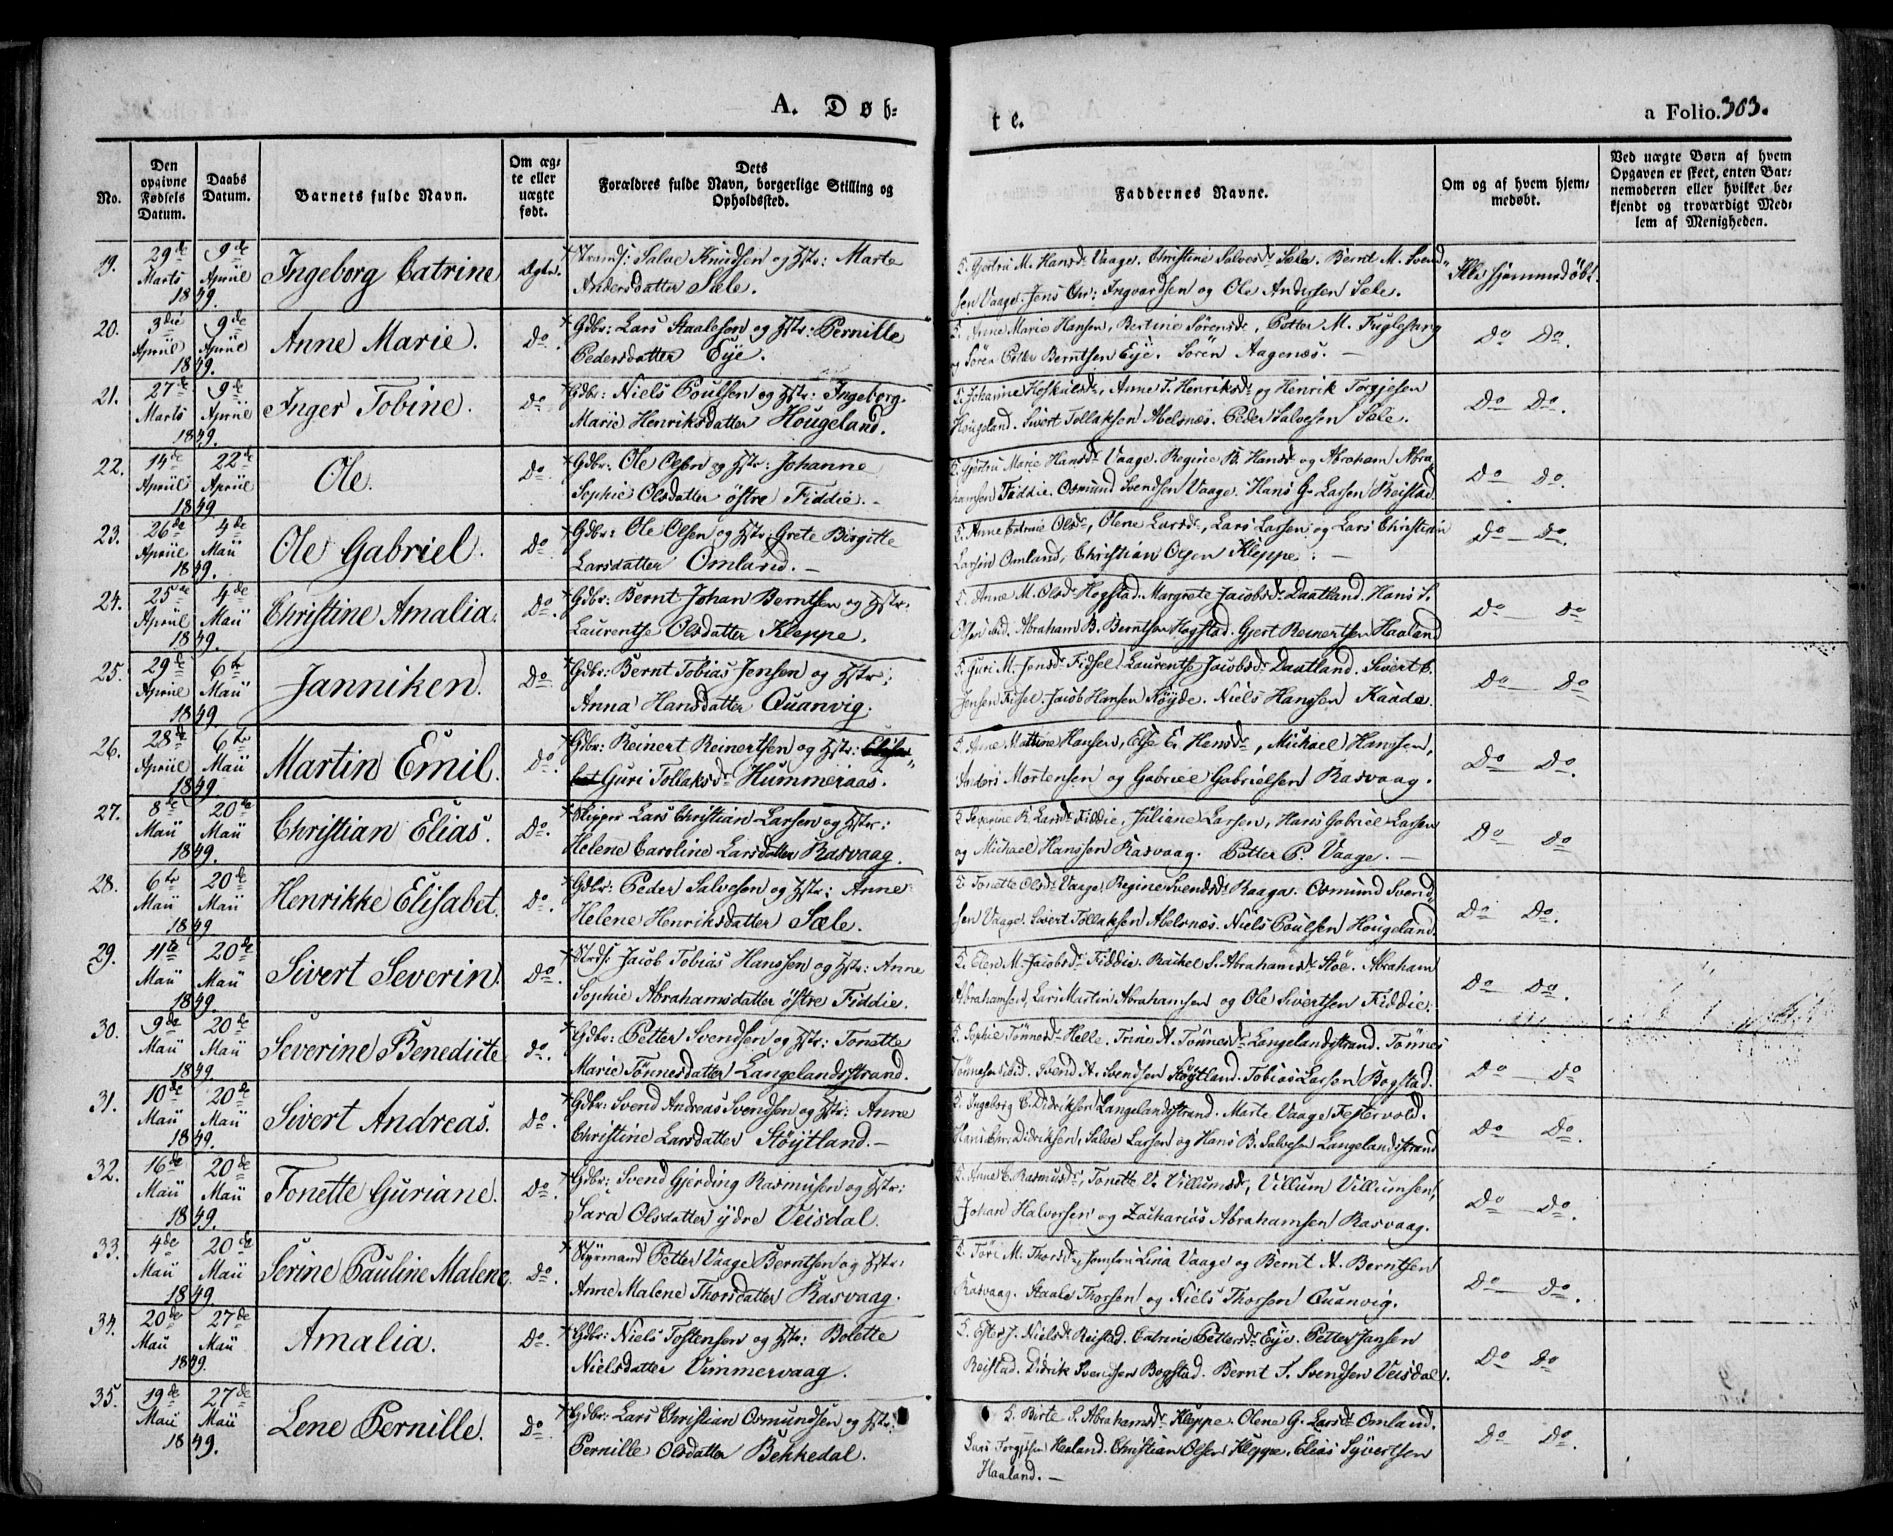 A. Døb-
te.
a Folio. 303.
No.
Den opgivne Fødsels Datum.
Daabs Datum.
Barnets fulde Navn.
Om ægte eller uægte født.
Dets Forældres fulde Navn, borgerlige Stilling og Opholdssted.
Faddernes Navne.
Om og af hvem hjemmedøbt.
Ved uægte Børn af hvem Opgaven er skeet, enten Barnemoderen eller hvilket bekjendt og troværdigt Medlem af Menigheden.
19. 29de Marts 1849. 9de Apriil Ingeborg Catrine Ægte.
Strands: Salve Knudsen og Hstr: Marte
Andersdatter Sæle.
F. Gjertru M. Hansd: Vaage. Christine Salvesd: Sæle. Bernt M. Svend-
sen Vaage. Jens Chr: Ingvardsen og Ole Andersen Sæle.
Ikke hjemmedøbt.
20. 3die Apriil 1849. 9de Apriil Anne Marie. Do.
Gdbr: Lars Staalesen og Hstr: Pernille
Pedersdatter Eye.
F. Anne Marie Hansen, Bertine Sörensd:, Petter M. Fuglestung
og Sören Petter Berntsen Eye. Sören Aagenæs. —
Do Do.
21. 27de Marts 1849. 9de Apriil Inger Tobine. Do
Gdbr: Niels Poulsen og Hstr: Ingeborg
Marie Henriksdatter Hougeland.
F. Johanne Heskildsd:, Anne T. Henriksd: og Henrik Torgjesen
Hougeland. Sivert Tollaksen Abelsnæs. Peder Salvesen Sæle.
Do Do.
22. 14de Apriil 1849 22de Apriil Ole. Do
Gdbr: Ole Olsen og Hstr: Johanne
Sophie Olsdatter östre Fiddie.
F. Gjertru Marie Hansd: Vaage. Regine B. Hansd: og Abraham Abra-
hamsen Fiddie. Osmund Svendsen Vaage. Hans G. Larsen Reistad.
Do Do.
23. 26de Apriil 1849. 4de Maii Ole Gabriel. Do.
Gdbr: Ole Olsen og Hstr: Grete Birgitte
Larsdatter Omland. —
F. Anne Olsd:, Olene Larsd:, Lars Larsen og Lars Christian
Larsen Omland, Christian Olsen Kleppe. —
Do Do.
24. 25de Apriil 1849. 4de Maii Christine Amalia. Do.
Gdbr: Bernt Johan Berntsen og Hstr:
Laurentse Olsdatter Kleppe.
F. Anne M. Olsd: Hogstad. Margrete Jacobsd: Daatland. Hans S.
Olsen ibid. Abraham B. Berntsen Hogstad. Gjert Reinertsen Haaland
Do Do
25. 29de Apriil 1849. 6te Maii Janniken. Do.
Gdbr: Bernt Tobias Jensen og Hstr:
Anna Hansdatter Quanvig.
F. Guri M. Jensd: Fidsel. Laurentse Jacobsd: Daatland. Sivert B.
Jensen Fidsel. Jacob Hansen Höyde. Niels Hansen Kaada.
Do Do
26. 28de Apriil 1849. 6te Maii Martin Emil. Do.
Gdbr: Reinert Reinertsen og Hstr:
Guri Tollaksd: Hummeraas.
F. Anne Mattine Hansen, Else E. Hansd:, Michael Hanssen,
Anders Mortensen og Gabriel Gabrielsen Rasvaag.
Do Do.
27. 8de Maii 1849. 20de Maii Christian Elias. Do.
Skipper Lars Christian Larsen og Hstr:
Helene Caroline Larsdatter Rasvaag.
F. Severine R. Larsd: Fiddie, Juliane Larsen, Hans Gabriel Larsen
og Michael Hanssen Rasvaag. Petter P. Vaage. —
Do Do
28. 6te Maii 1849 20de Maii Henrikke Elisabet. Do.
Gdbr: Peder Salvesen og Hstr: Anne
Helene Henriksdatter Sæle.
F. Tonette Olsd: Vaage. Regine Svendsd: Raaga. Osmund Svend-
sen Vaage. Sivert Tollaksen Abelsnæs. Niels Poulsen Hougeland.
Do Do.
29. 11te Maii 1849. 20de Maii Sivert Severin. Do.
Strds: Jacob Tobias Hanssen og Hstr: Anne
Sophie Abrahamsdatter östre Fiddie.
F. Elen M. Jacobsd: Fiddie. Rachel S. Abrahamsd: Stöe. Abraham
Abrahamsen, Lars Martin Abrahamsen og Ole Sivertsen Fiddie.
Do Do.
30. 9de Maii 1849. 20de Maii Severine Benedicte do.
Gdbr: Petter Svendsen og Hstr: Tonette
Marie Tönnesdatter Langelandsstrand.
F. Sophie Tönnesd: Helle. Trine A. Tönnesd: Langelandstrand. Tönnes
Tönnesen ibid. Svend A. Svendsen Stöytland. Tobias Larsen Bogstad.
Do Do
31. 10de Maii 1849. 20de Maii Sivert Andreas. Do.
Gdbr: Svend Andreas Svendsen og Hstr: Anne
Christine Larsdatter Stöytland. —
F. Ingeborg C. Didriksen Langelandstrand. Marte Vaage Festervold.
Hans Chr: Didriksen, Salve Larsen og Hans B. Salvesen Langelandstrand
Do Do.
32. 16de Maii 1849. 20de Maii Tonette Guriane. Do.
Gdbr: Svend Gjerding Rasmusen og Hstr:
Sara Olsdatter ydre Veisdal.
F. Anne C. Rasmusd:, Tonette V. Villumsd:, Villum Villumsen,
Johan Halvorsen og Zacharias Abrahamsen Rasvaag.
Do Do.
33. 4de Maii 1849. 20de Maii Serine Pauline Malene. Do.
Styrmand Petter Vaage Berntsen og Hstr:
Anne Malene Thorsdatter Rasvaag.
F. Tori M. Thorsd:, Lina Vaage og Bernt A. Berntsen
Rasvaag. Staale Thorsen og Niels Thorsen Quanvig.
Do Do.
34. 20de Maii 1849. 27de Maii Amalia. Do.
Gdbr: Niels Tostensen og Hstr: Bolette
Nielsdatter Vimmervaag.
F. Ester J. Nielsd: Reistad. Catrine Pettersd: Eye. Petter Jansen
Reistad. Didrik Svendsen Bogstad. Bernt S. Svendsen Veisdal.
Do Do
35. 19de Maii 1849. 27de Maii Lene Pernille. Do.
Gdbr: Lars Christian Osmundsen og Hstr:
Pernille Olsdatter Bekkedal.
F. Birte S. Abrahamsd: Kleppe. Olene G. Larsd: Omland.
Lars Torgjesen Haaland. Christian Olsen Kleppe, Elias Syvertsen
Haaland. —
Do Do.